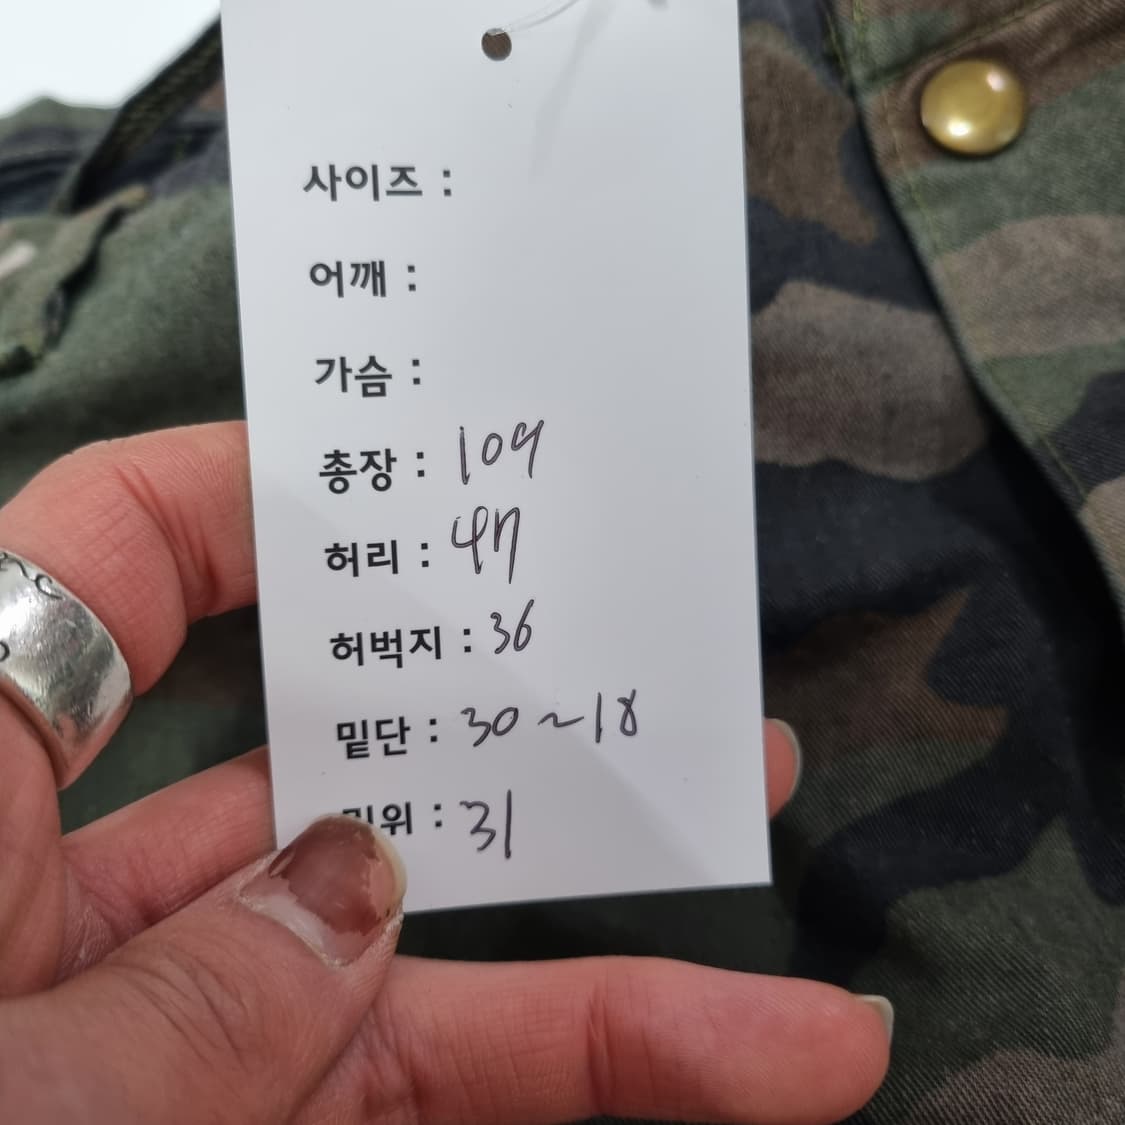 사이즈 :
어깨 :
가슴 :
총장 : 109
허리 : 47
허벅지 : 36
밑단 : 30~18
밑위 : 31